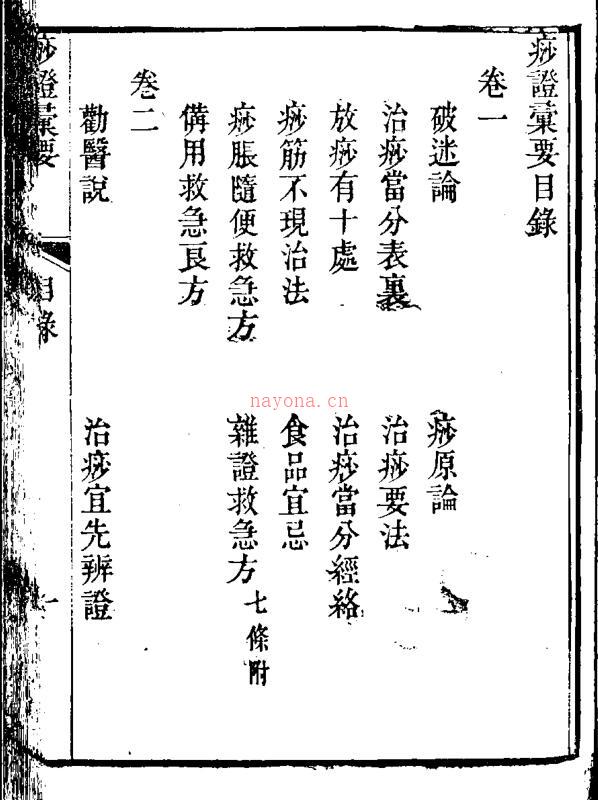 痧證彙要目錄
卷一
破迷論
痧原論
治痧當分表裏
治痧要法
放痧有十處
治痧當分經絡
痧筋不現治法
食品宜忌
痧脹隨便救急方
雜證救急方 七條附
備用救急良方
卷二
勸醫說
治痧宜先辨證
痧證彙要
目錄
一
nayona.cn